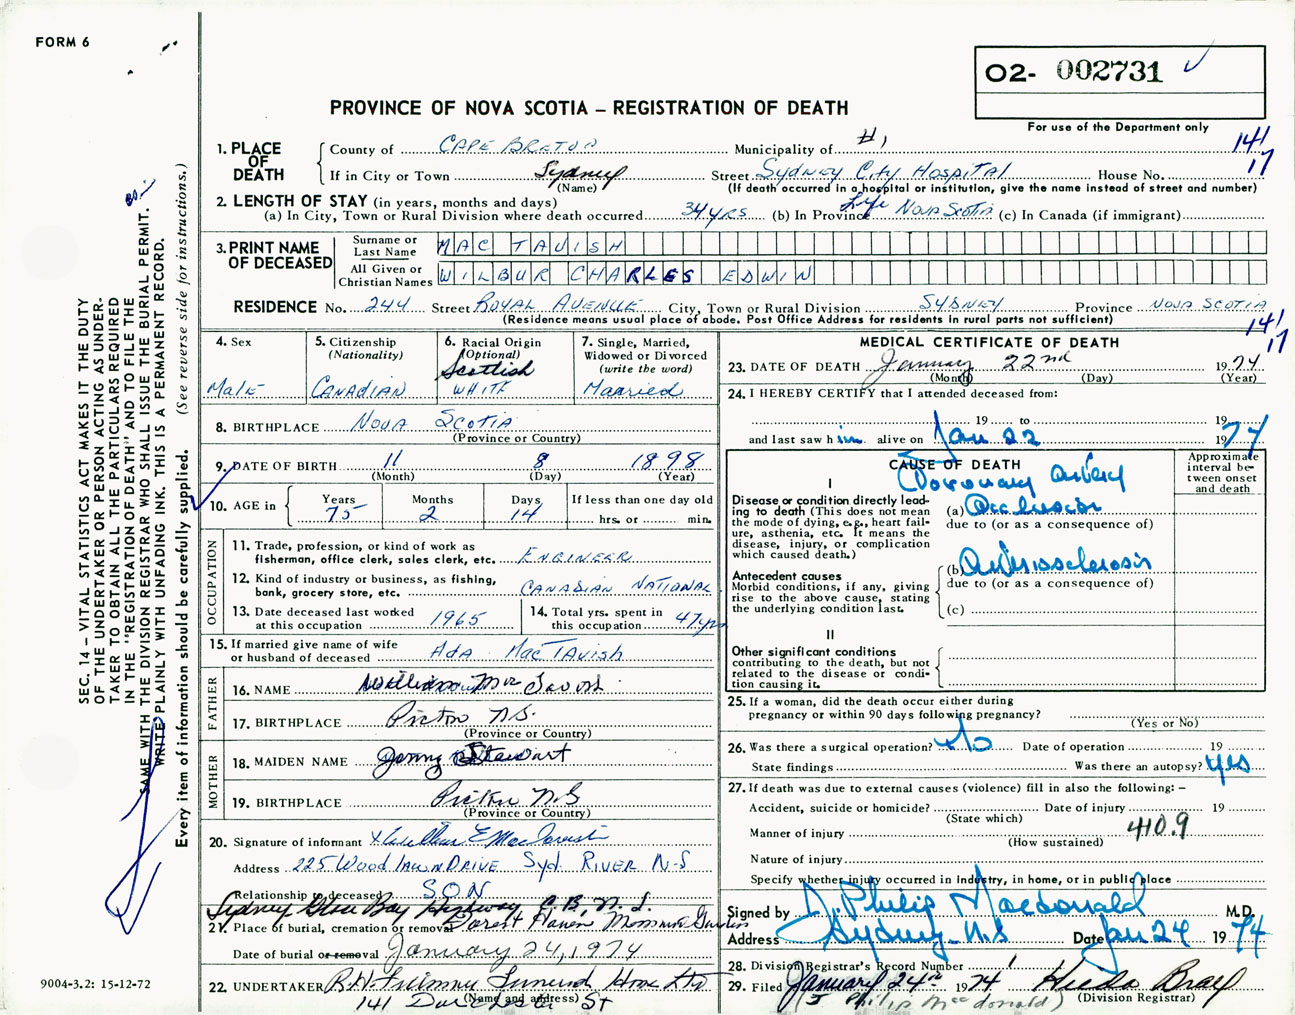 FORM 6
O2- 002731
For use of the Department only
PROVINCE OF NOVA SCOTIA – REGISTRATION OF DEATH
1. PLACE OF DEATH
County of CAPE BRETON Municipality of #1
141
17
If in City or Town Sydney Street SYDNEY CITY HOSPITAL House No.
(Name) (If death occurred in a hospital or institution, give the name instead of street and number)
2. LENGTH OF STAY (in years, months and days)
(a) In City, Town or Rural Division where death occurred 34 YRS (b) In Province Life NOVA SCOTIA (c) In Canada (if immigrant)
3. PRINT NAME OF DECEASED
Surname or Last Name MAC TAVISH
All Given or Christian Names WILBUR CHARLES EDWIN
RESIDENCE No. 244 Street ROYAL AVENUE City, Town or Rural Division SYDNEY Province NOVA SCOTIA
(Residence means usual place of abode. Post Office Address for residents in rural parts not sufficient)
141
17
4. Sex
MALE
5. Citizenship
(Nationality)
CANADIAN
6. Racial Origin
(Optional)
Scottish
WHITE
7. Single, Married,
Widowed or Divorced
(write the word)
MARRIED
8. BIRTHPLACE NOVA SCOTIA
(Province or Country)
9. DATE OF BIRTH 11 8 1898
(Month) (Day) (Year)
10. AGE in Years 75 Months 2 Days 14
If less than one day old
hrs. or min.
OCCUPATION
11. Trade, profession, or kind of work as
fisherman, office clerk, sales clerk, etc. ENGINEER
12. Kind of industry or business, as fishing,
bank, grocery store, etc. CANADIAN NATIONAL
13. Date deceased last worked
at this occupation 1965
14. Total yrs. spent in
this occupation 47 yrs
15. If married give name of wife
or husband of deceased ADA MACTAVISH
FATHER
16. NAME William Mac Tavish
17. BIRTHPLACE Pictou N.S.
(Province or Country)
MOTHER
18. MAIDEN NAME Jenny Stewart
19. BIRTHPLACE Pictou N.S
(Province or Country)
20. Signature of informant x E MacTavish
Address 225 WOODLAWN DRIVE Syd. RIVER N-S
Relationship to deceased SON
Sydney Glace Bay Highway C.B., N.S.
21. Place of burial, cremation or removal Forest Haven Gardens
Date of burial or removal January 24, 1974
22. UNDERTAKER R.H. Funeral Home Ltd
(Name and address)
141 St
MEDICAL CERTIFICATE OF DEATH
23. DATE OF DEATH January 22nd 1974
(Month) (Day) (Year)
24. I HEREBY CERTIFY that I attended deceased from:
19 to 19
and last saw him alive on Jan 22 1974
CAUSE OF DEATH
Approximate interval between onset and death
I
Disease or condition directly leading to death (This does not mean the mode of dying, e.g., heart failure, asthenia, etc. It means the disease, injury, or complication which caused death.)
Coronary artery
(a) Occlusion
due to (or as a consequence of)
Antecedent causes
Morbid conditions, if any, giving rise to the above cause, stating the underlying condition last.
(b) Arteriosclerosis
due to (or as a consequence of)
(c)
II
Other significant conditions
contributing to the death, but not related to the disease or condition causing it.
25. If a woman, did the death occur either during
pregnancy or within 90 days following pregnancy?
(Yes or No)
26. Was there a surgical operation? No Date of operation 19
State findings Was there an autopsy? yes
27. If death was due to external causes (violence) fill in also the following: –
Accident, suicide or homicide? Date of injury 19
(State which)
Manner of injury 410.9
(How sustained)
Nature of injury
Specify whether injury occurred in Industry, in home, or in public place
Signed by J. Philip Macdonald M.D.
Address Sydney N.S Date Jan 24 1974
28. Division Registrar's Record Number
29. Filed January 24th 1974
(J Philip Macdonald) (Division Registrar)
SEC. 14 – VITAL STATISTICS ACT MAKES IT THE DUTY
OF THE UNDERTAKER OR PERSON ACTING AS UNDER-
TAKER TO OBTAIN ALL THE PARTICULARS REQUIRED
IN THE "REGISTRATION OF DEATH" AND TO FILE THE
SAME WITH THE DIVISION REGISTRAR WHO SHALL ISSUE THE BURIAL PERMIT.
WRITE PLAINLY WITH UNFADING INK. THIS IS A PERMANENT RECORD.
Every item of information should be carefully supplied. (See reverse side for instructions.)
9004-3.2: 15-12-72